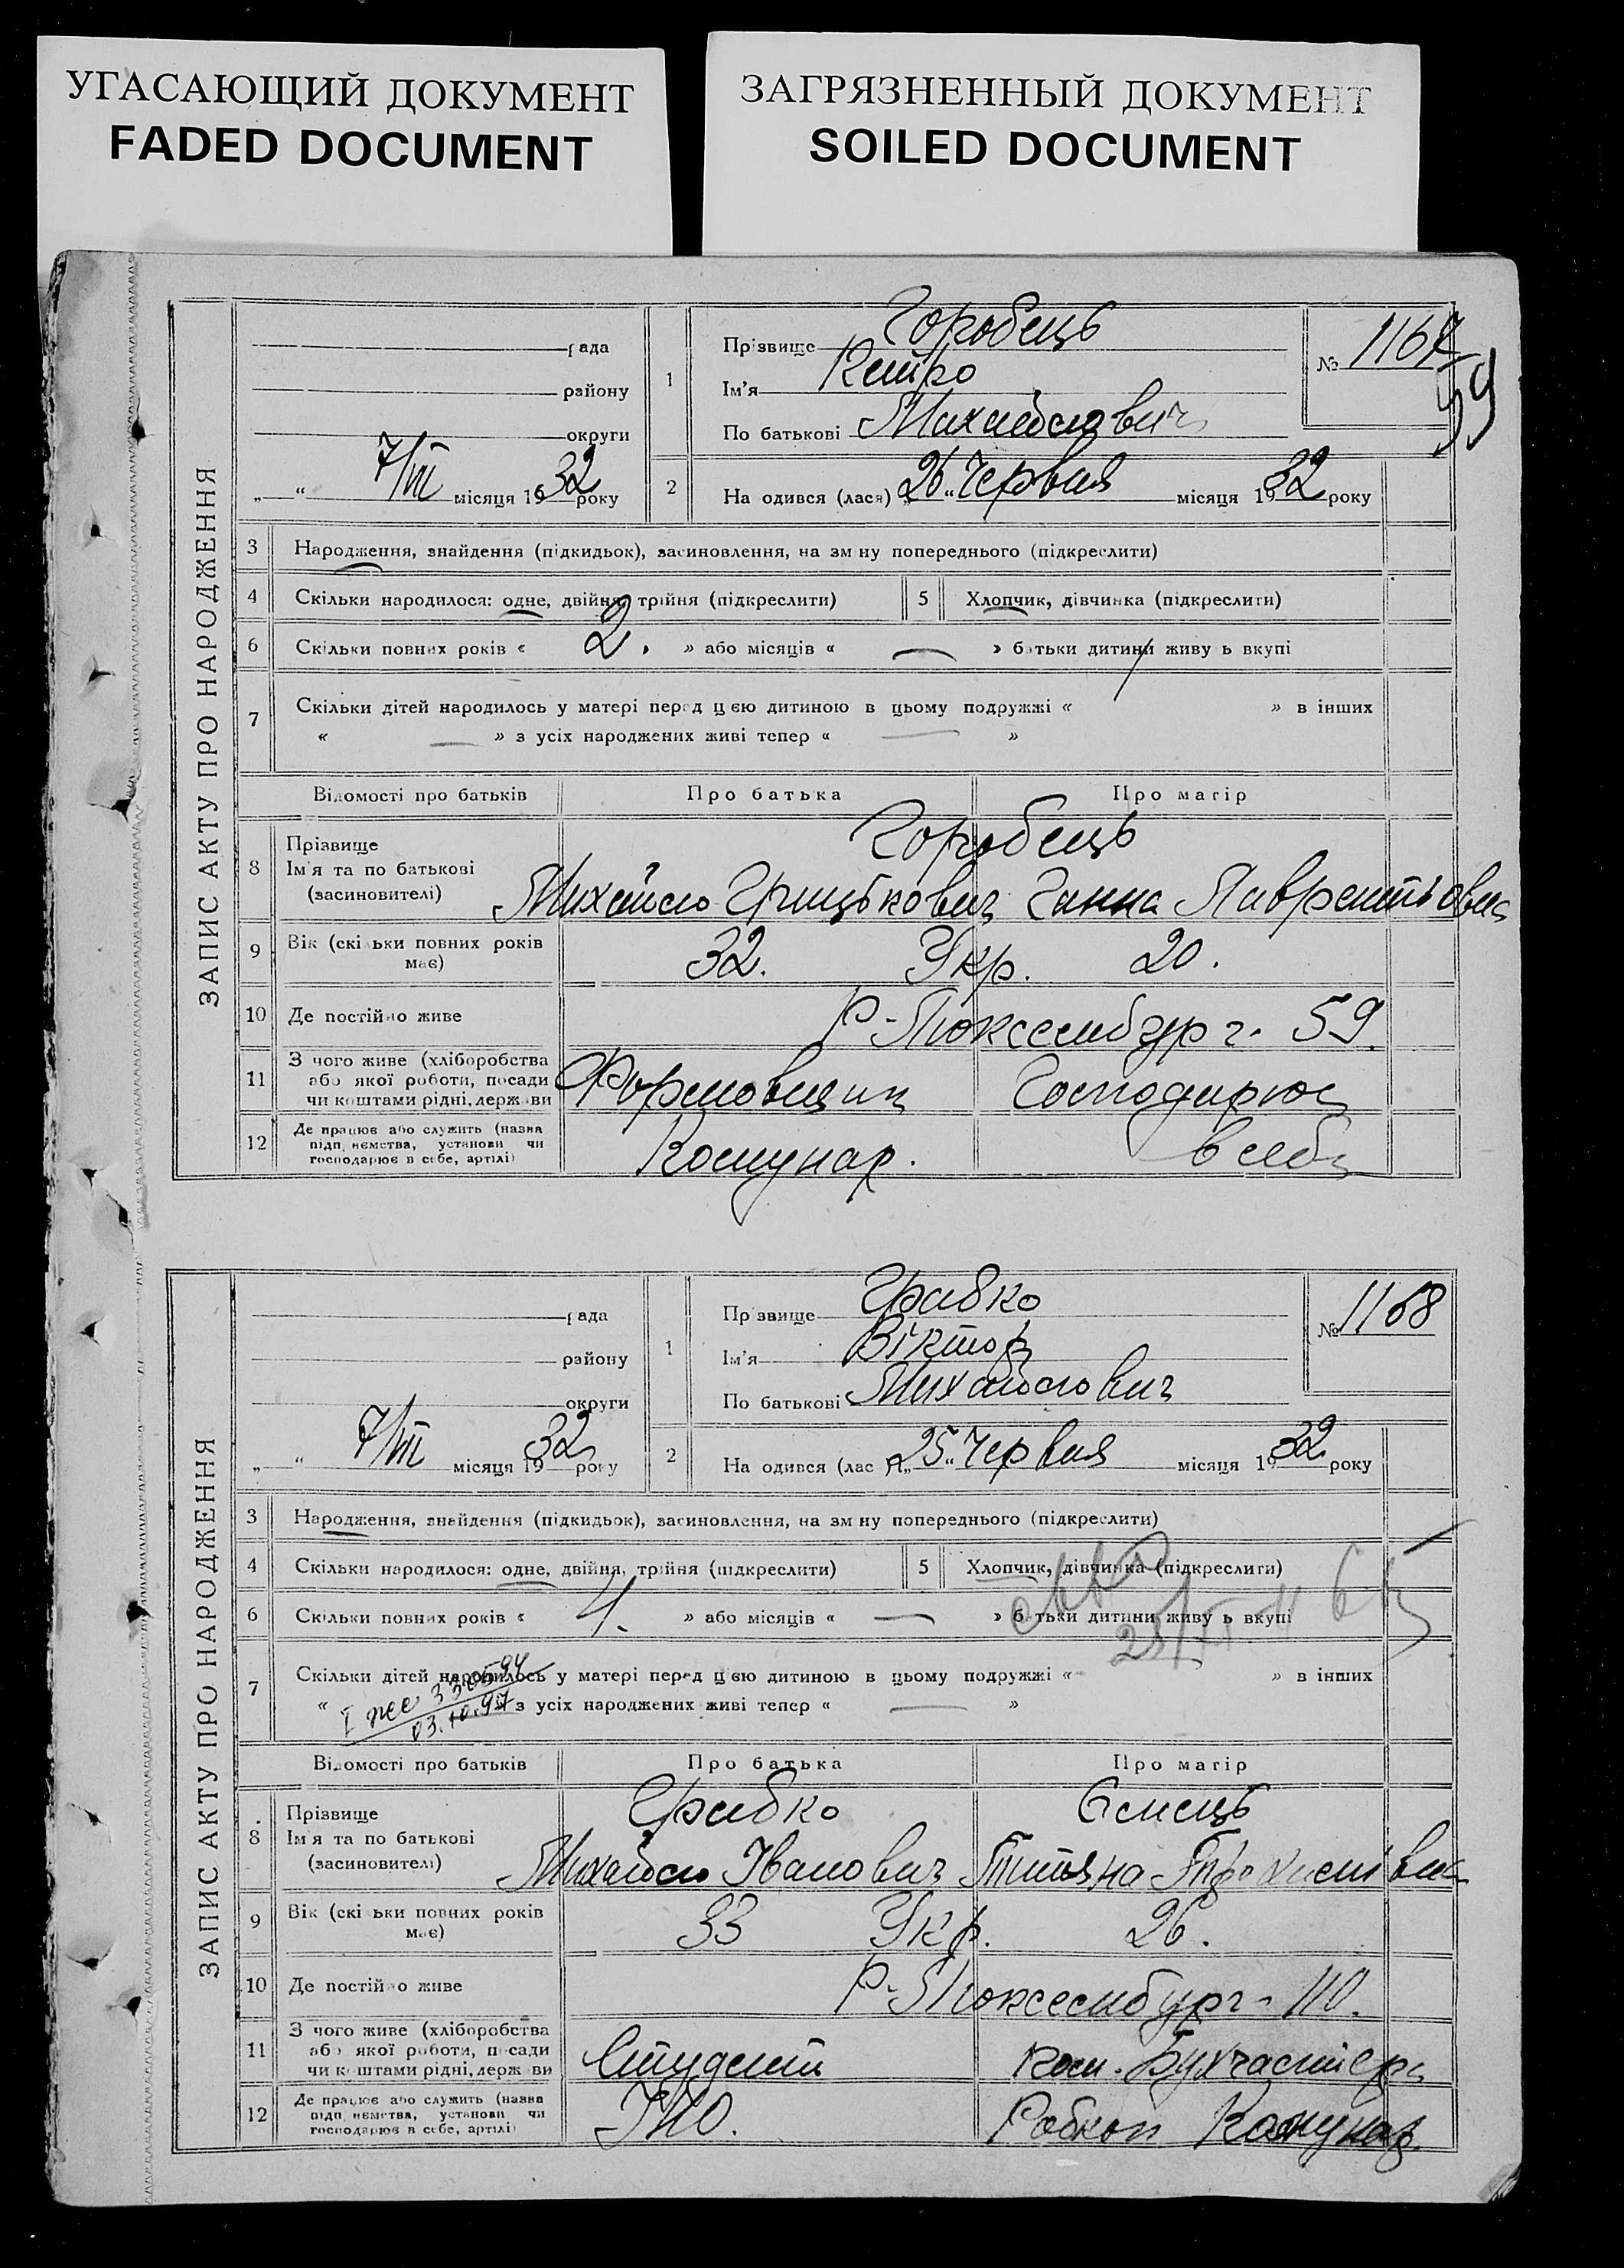 УГАСАЮЩИЙ ДОКУМЕНТ
FADED DOCUMENT
ЗАГРЯЗНЕННЫЙ ДОКУМЕНТ
SOILED DOCUMENT
ЗАПИС АКТУ ПРО НАРОДЖЕННЯ
рада
району
округи
„ “ 7/VII місяця 1932 року
1
Прізвище Горобець
Ім'я
По батькові Михайлович
№ 1167
59
2
На одився (лася) „26“ Червня місяця 1932 року
3 Народження, знайдення (підкидьок), засиновлення, на зм ну попереднього (підкреслити)
4 Скільки народилося: одне, двійня, трійня (підкреслити) 5 Хлопчик, дівчинка (підкреслити)
6 Скільки повних років « 2. » або місяців « — » батьки дитини живу ь вкупі
7 Скільки дітей народилось у матері перед цією дитиною в цьому подружжі « / » в інших
« — » з усіх народжених живі тепер « — »
Відомості про батьків Про батька Про матір
8 Прізвище Горобець
Ім'я та по батькові Михайло Грицькович Ганна Лаврентьовна
(засиновителі)
9 Вік (скільки повних років має) 32. Укр. 20.
10 Де постійно живе Р-Люксембург. 59.
11 З чого живе (хліборобства або якої роботи, посади чи коштами рідні, держави Формовщик Господарює
12 Де працює або служить (назва підп иємства, установи чи господарює в себе, артілі) Комунар. в себе
ЗАПИС АКТУ ПРО НАРОДЖЕННЯ
рада
району
округи
„ “ 7/VII місяця 1932 року
1
Пр звище Грабко
Ім'я Віктор
По батькові Михайлович
№ 1168
2
На одився (лас я) „25“ Червня місяця 1932 року
3 Народження, знайдення (підкидьок), засиновлення, на зм ну попереднього (підкреслити)
4 Скільки народилося: одне, двійня, трійня (підкреслити) 5 Хлопчик, дівчинка (підкреслити)
6 Скільки повних років « 4. » або місяців « — » батьки дитини живу ь вкупі
7 Скільки дітей народилось у матері перед цією дитиною в цьому подружжі « » в інших
« » з усіх народжених живі тепер « — »
Відомості про батьків Про батька Про матір
8 Прізвище Грабко
Ім'я та по батькові Михайло Іванович Титяна
(засиновителі)
9 Вік (скі ьки повних років має) 33 Укр. 26.
10 Де постійно живе Р-Люксембург- 110.
11 З чого живе (хліборобства або якої роботи, посади чи коштами рідні, держави Студент пом. Бухгалтера
12 Де працює або служить (назва підп иємства, установи чи господарює в себе, артілі) ІНО. Робкоп Комунар.